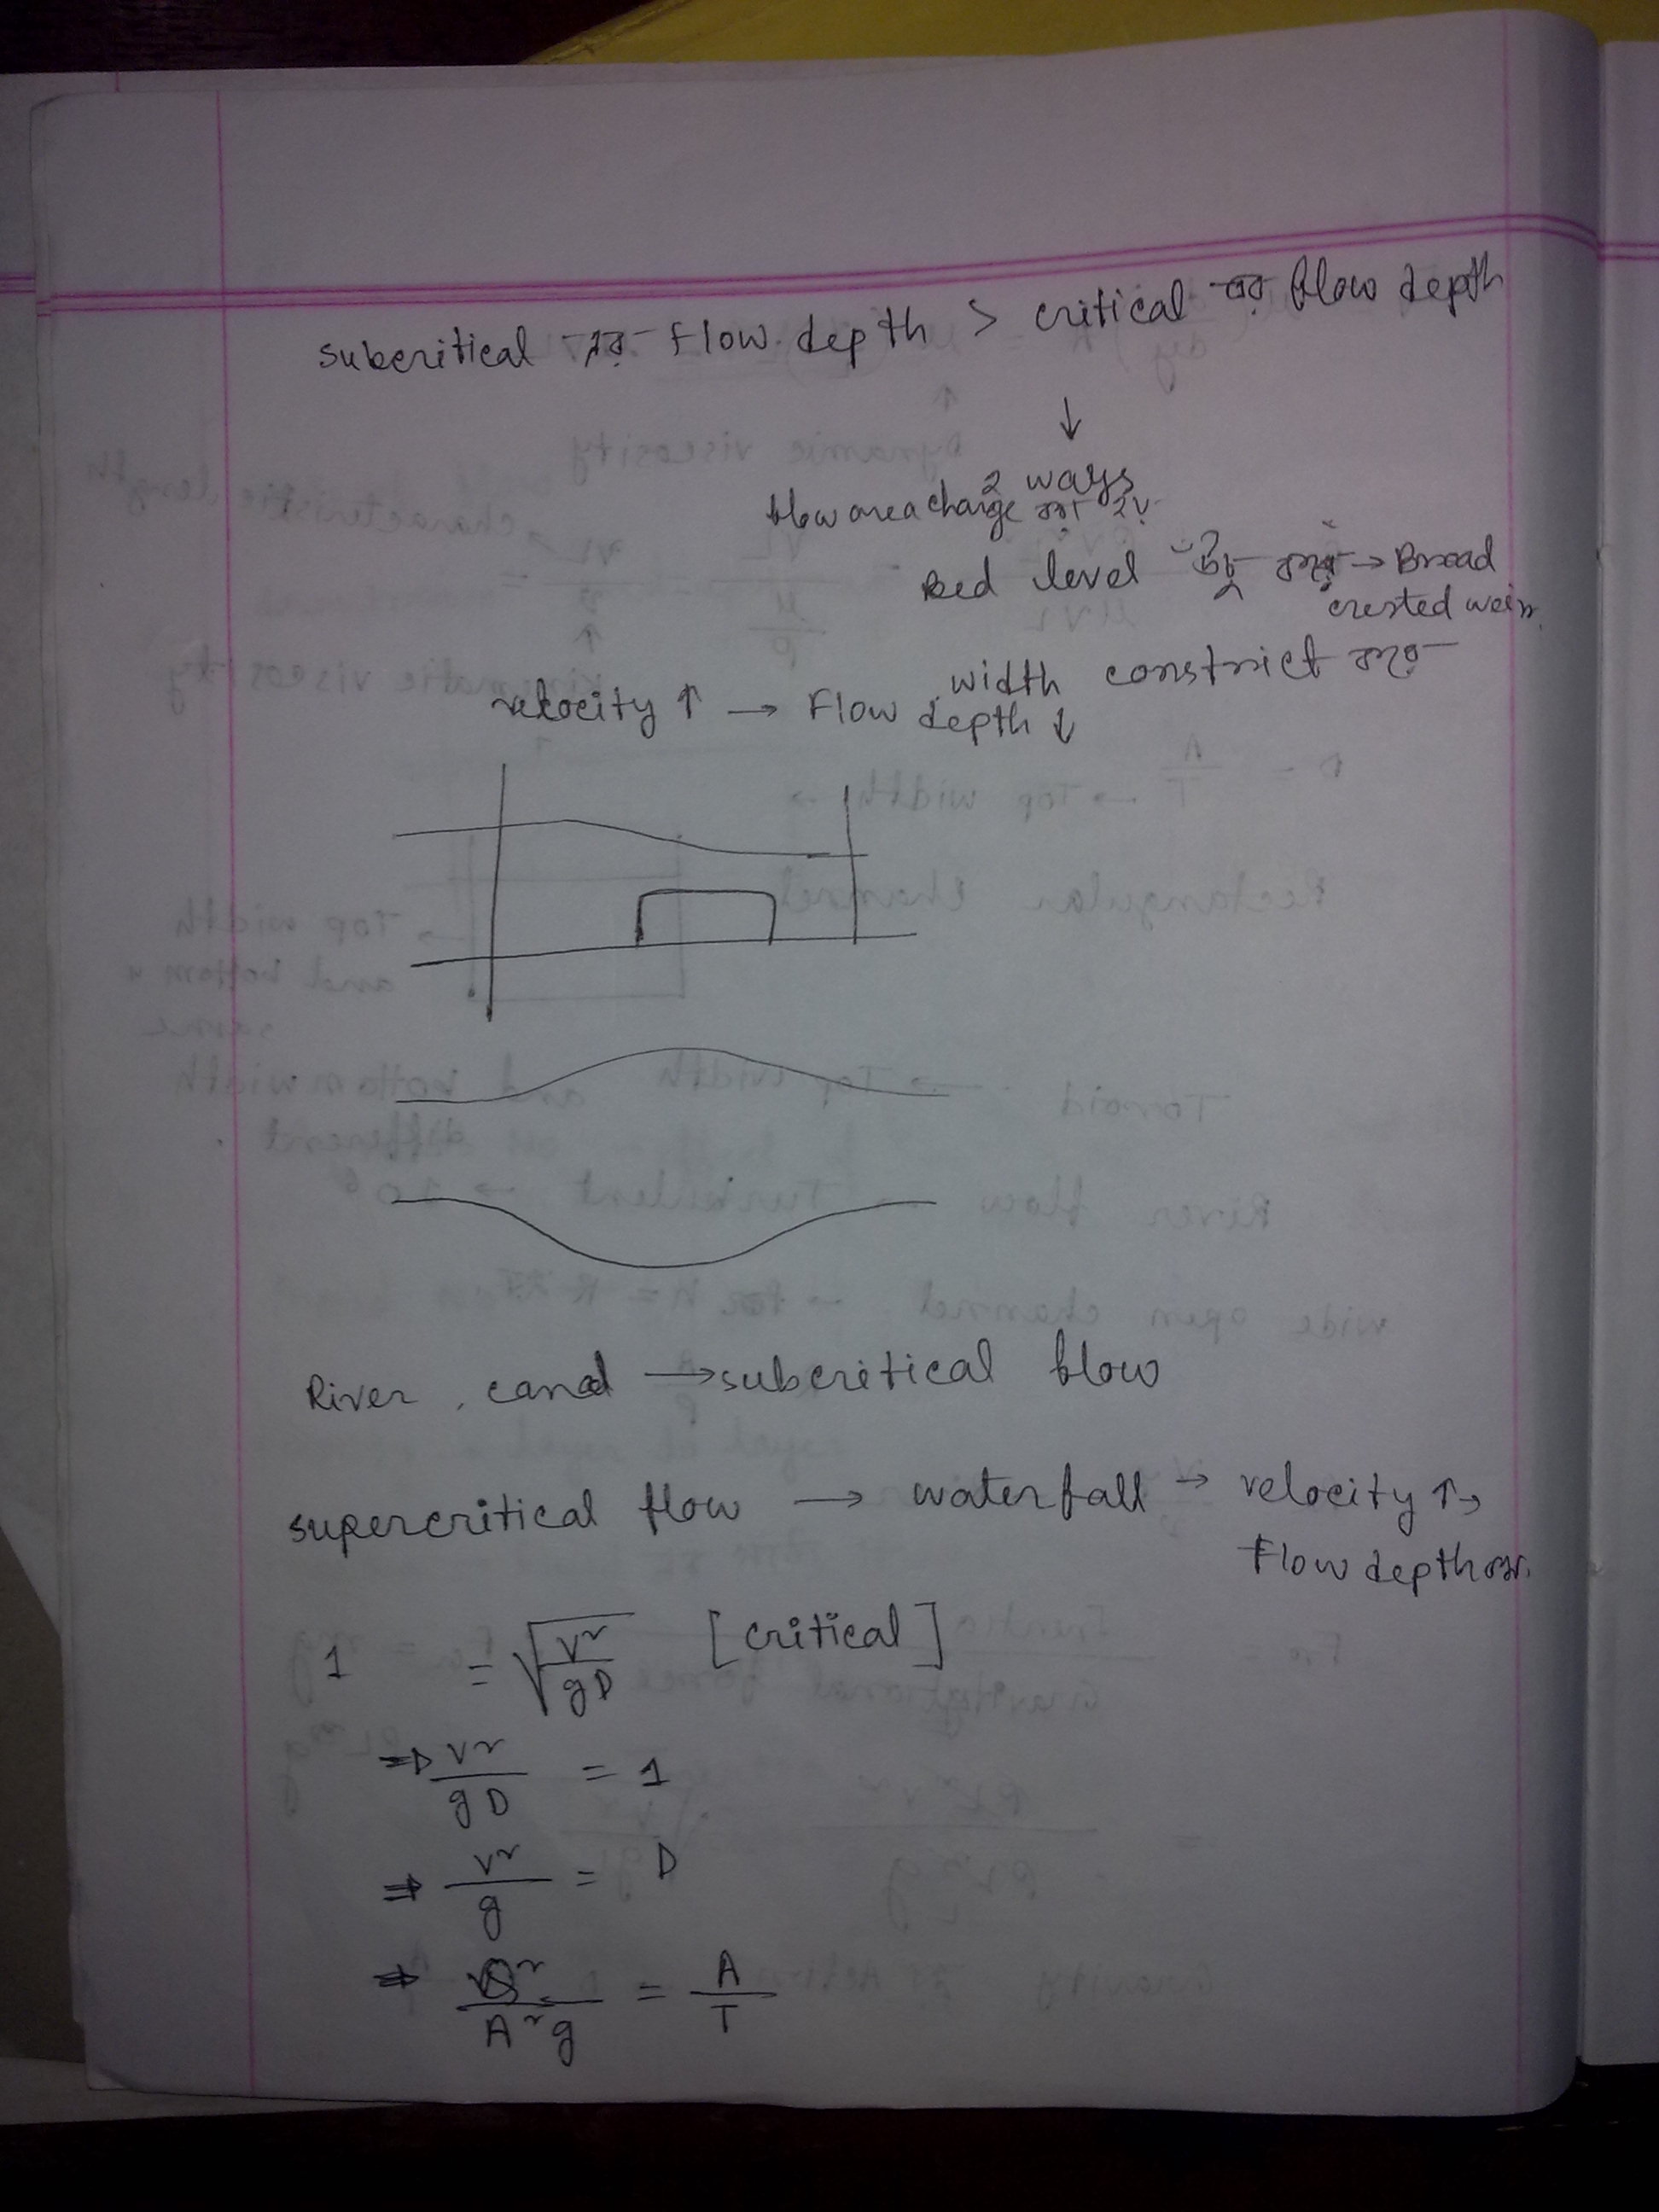 subcritical এর Flow depth > critical এর flow depth
↓
2 ways
flow area change করা হয়
Bed level উঁচু করে → Broad
crested weir
width constrict করে
velocity ↑ → Flow depth ↓
River, canal → subcritical flow
supercritical flow → waterfall → velocity ↑,
Flow depth কম.
1 = √(V²/gD) [critical]
⇒ V²/gD = 1
⇒ V²/g = D
⇒ Q²/A²g = A/T